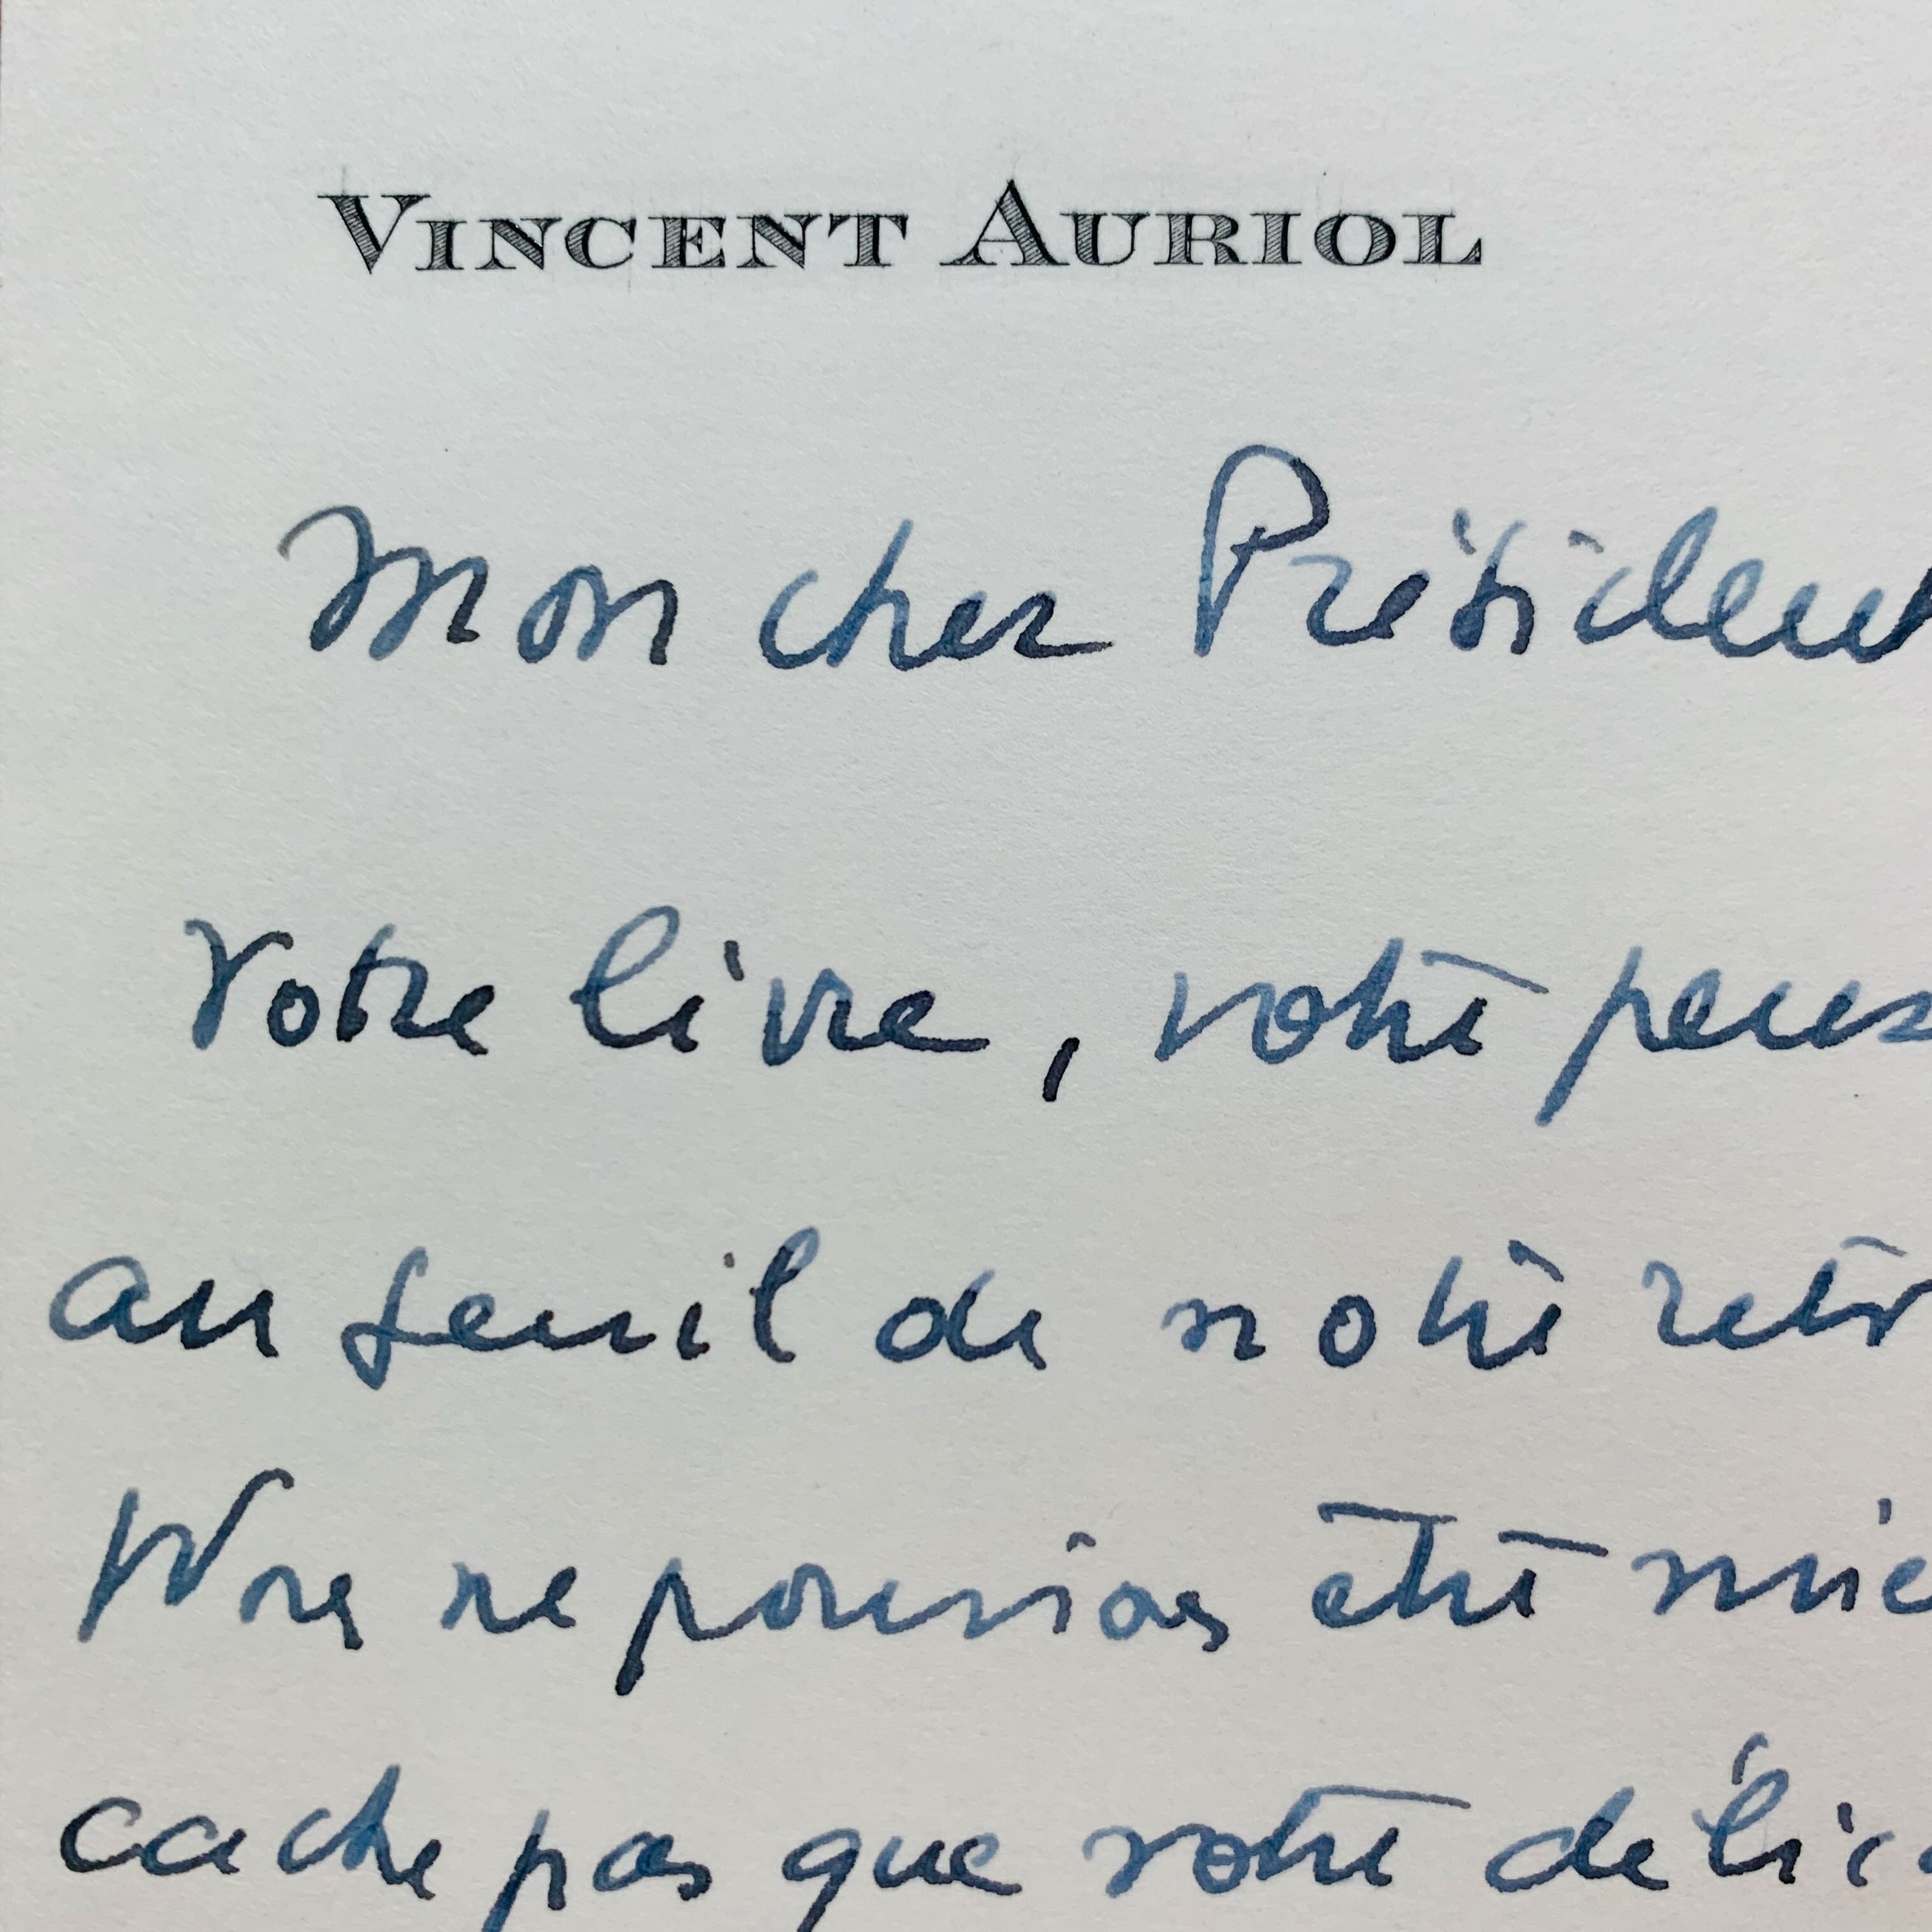 VINCENT AURIOL
Mon cher Président
Votre livre, votre pens
au seuil de notre retr
Nous ne pouvions être mie
cache pas que votre délic